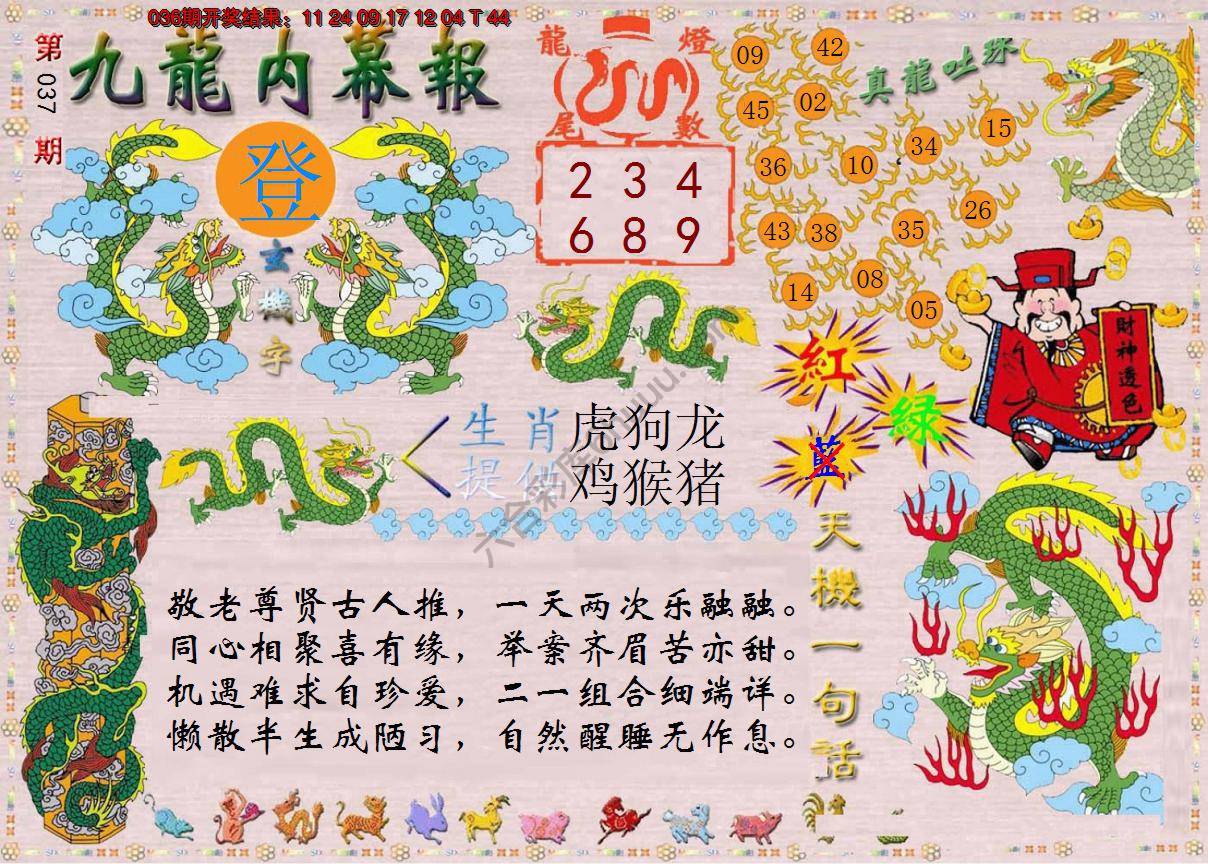 036期开奖结果：11 24 09 17 12 04 T 44
第037期
九龍内幕報
登
玄機字
龍燈
尾數
2 3 4
6 8 9
真龍吐珠
09
42
45
02
36
10
34
15
43
38
35
26
14
08
05
財神透色
紅
綠
藍
生肖提供
虎狗龙
鸡猴猪
天機一句話
敬老尊贤古人推，一天两次乐融融。
同心相聚喜有缘，举案齐眉苦亦甜。
机遇难求自珍爱，二一组合细端详。
懒散半生成陋习，自然醒睡无作息。